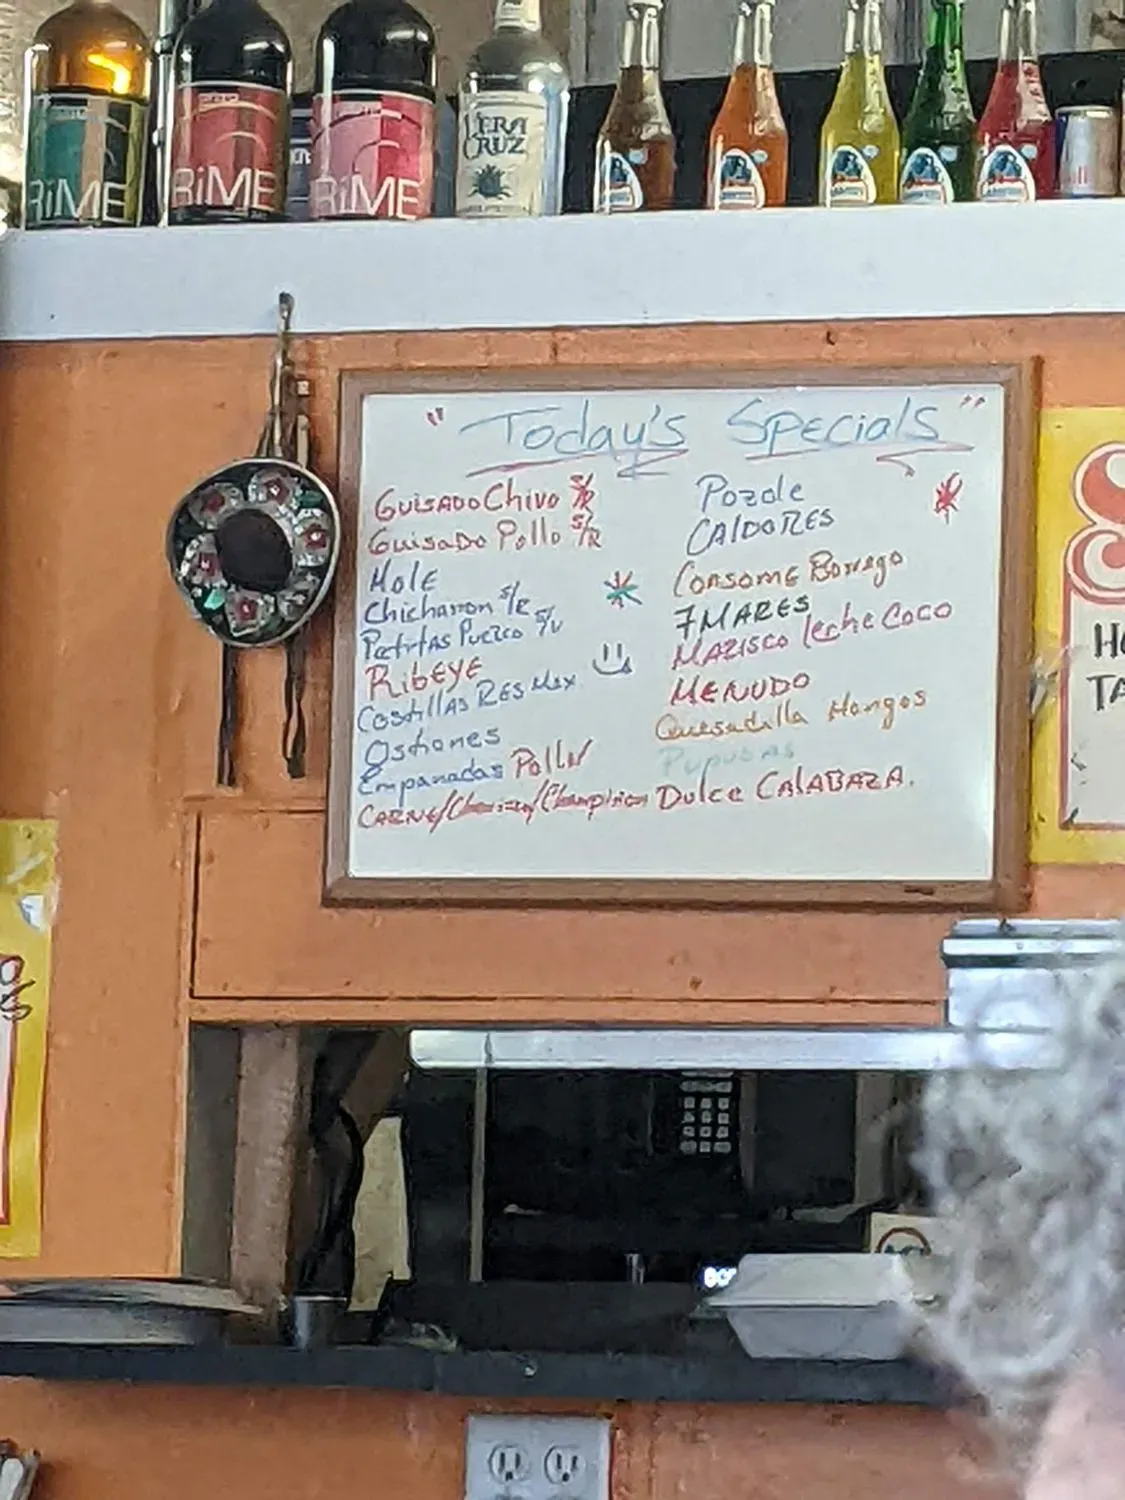 RiME
RiME
RiME
VERA
CRUZ
"Today's Specials"
GUISADO Chivo S/R
Guisado Pollo S/R
MOLE
Chicharron S/R
Patitas Puerco S/V
RibEYE
Costillas Res Mex
Ostiones
Empanadas Pollo/
CARNE/Chorizo/Champiñon
Pozole
CAlDO RES
Consome Borrego
7 MARES
MARISCO leche Coco
MENUDO
Quesadilla Hongos
Pupusas
Dulce CALABAZA.
TA